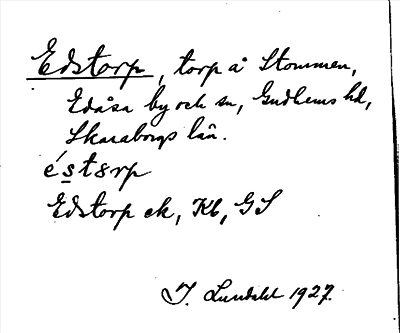 Edstorp, torp å Stommen,
Edåsa by och sn, Gudhems hd,
Skaraborgs län.
éstɘrp
Edstorp ek, Kb, GS
I. Lundahl 1927.